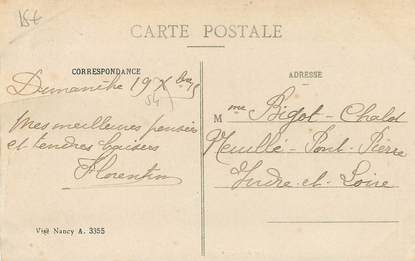 15€
CARTE POSTALE
CORRESPONDANCE
ADRESSE
Dimanche 19 Xbre
54
Mes meilleures pensées
et tendres baisers
Florentin
Mme Bigot-Chalot
Neuillé-Pont-Pierre
Indre-et-Loire
Visé Nancy A. 3355